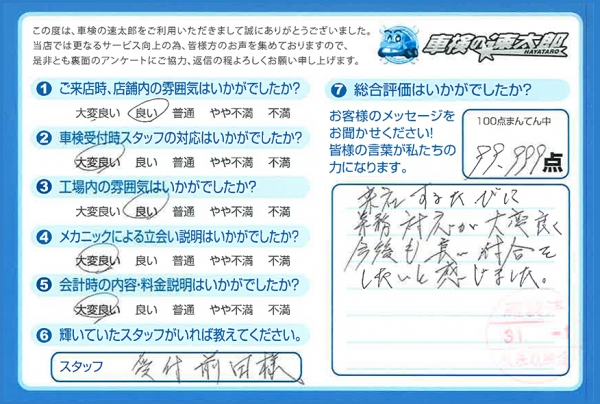 この度は、車検の速太郎をご利用いただきまして誠にありがとうございました。
当店では更なるサービス向上の為、皆様方のお声を集めておりますので、
是非とも裏面のアンケートにご協力、返信の程よろしくお願い申し上げます。
車検の速太郎
HAYATARO
1 ご来店時、店舗内の雰囲気はいかがでしたか?
大変良い 良い 普通 やや不満 不満
2 車検受付時スタッフの対応はいかがでしたか?
大変良い 良い 普通 やや不満 不満
3 工場内の雰囲気はいかがでしたか?
大変良い 良い 普通 やや不満 不満
4 メカニックによる立会い説明はいかがでしたか?
大変良い 良い 普通 やや不満 不満
5 会計時の内容・料金説明はいかがでしたか?
大変良い 良い 普通 やや不満 不満
6 輝いていたスタッフがいれば教えてください。
スタッフ 受付 前田様
7 総合評価はいかがでしたか?
お客様のメッセージを
お聞かせください!
皆様の言葉が私たちの
力になります。
100点まんてん中
99.999点
来店するたびに
業務対応が大変良く
今後も長い付合を
したいと感じました。
31.-1